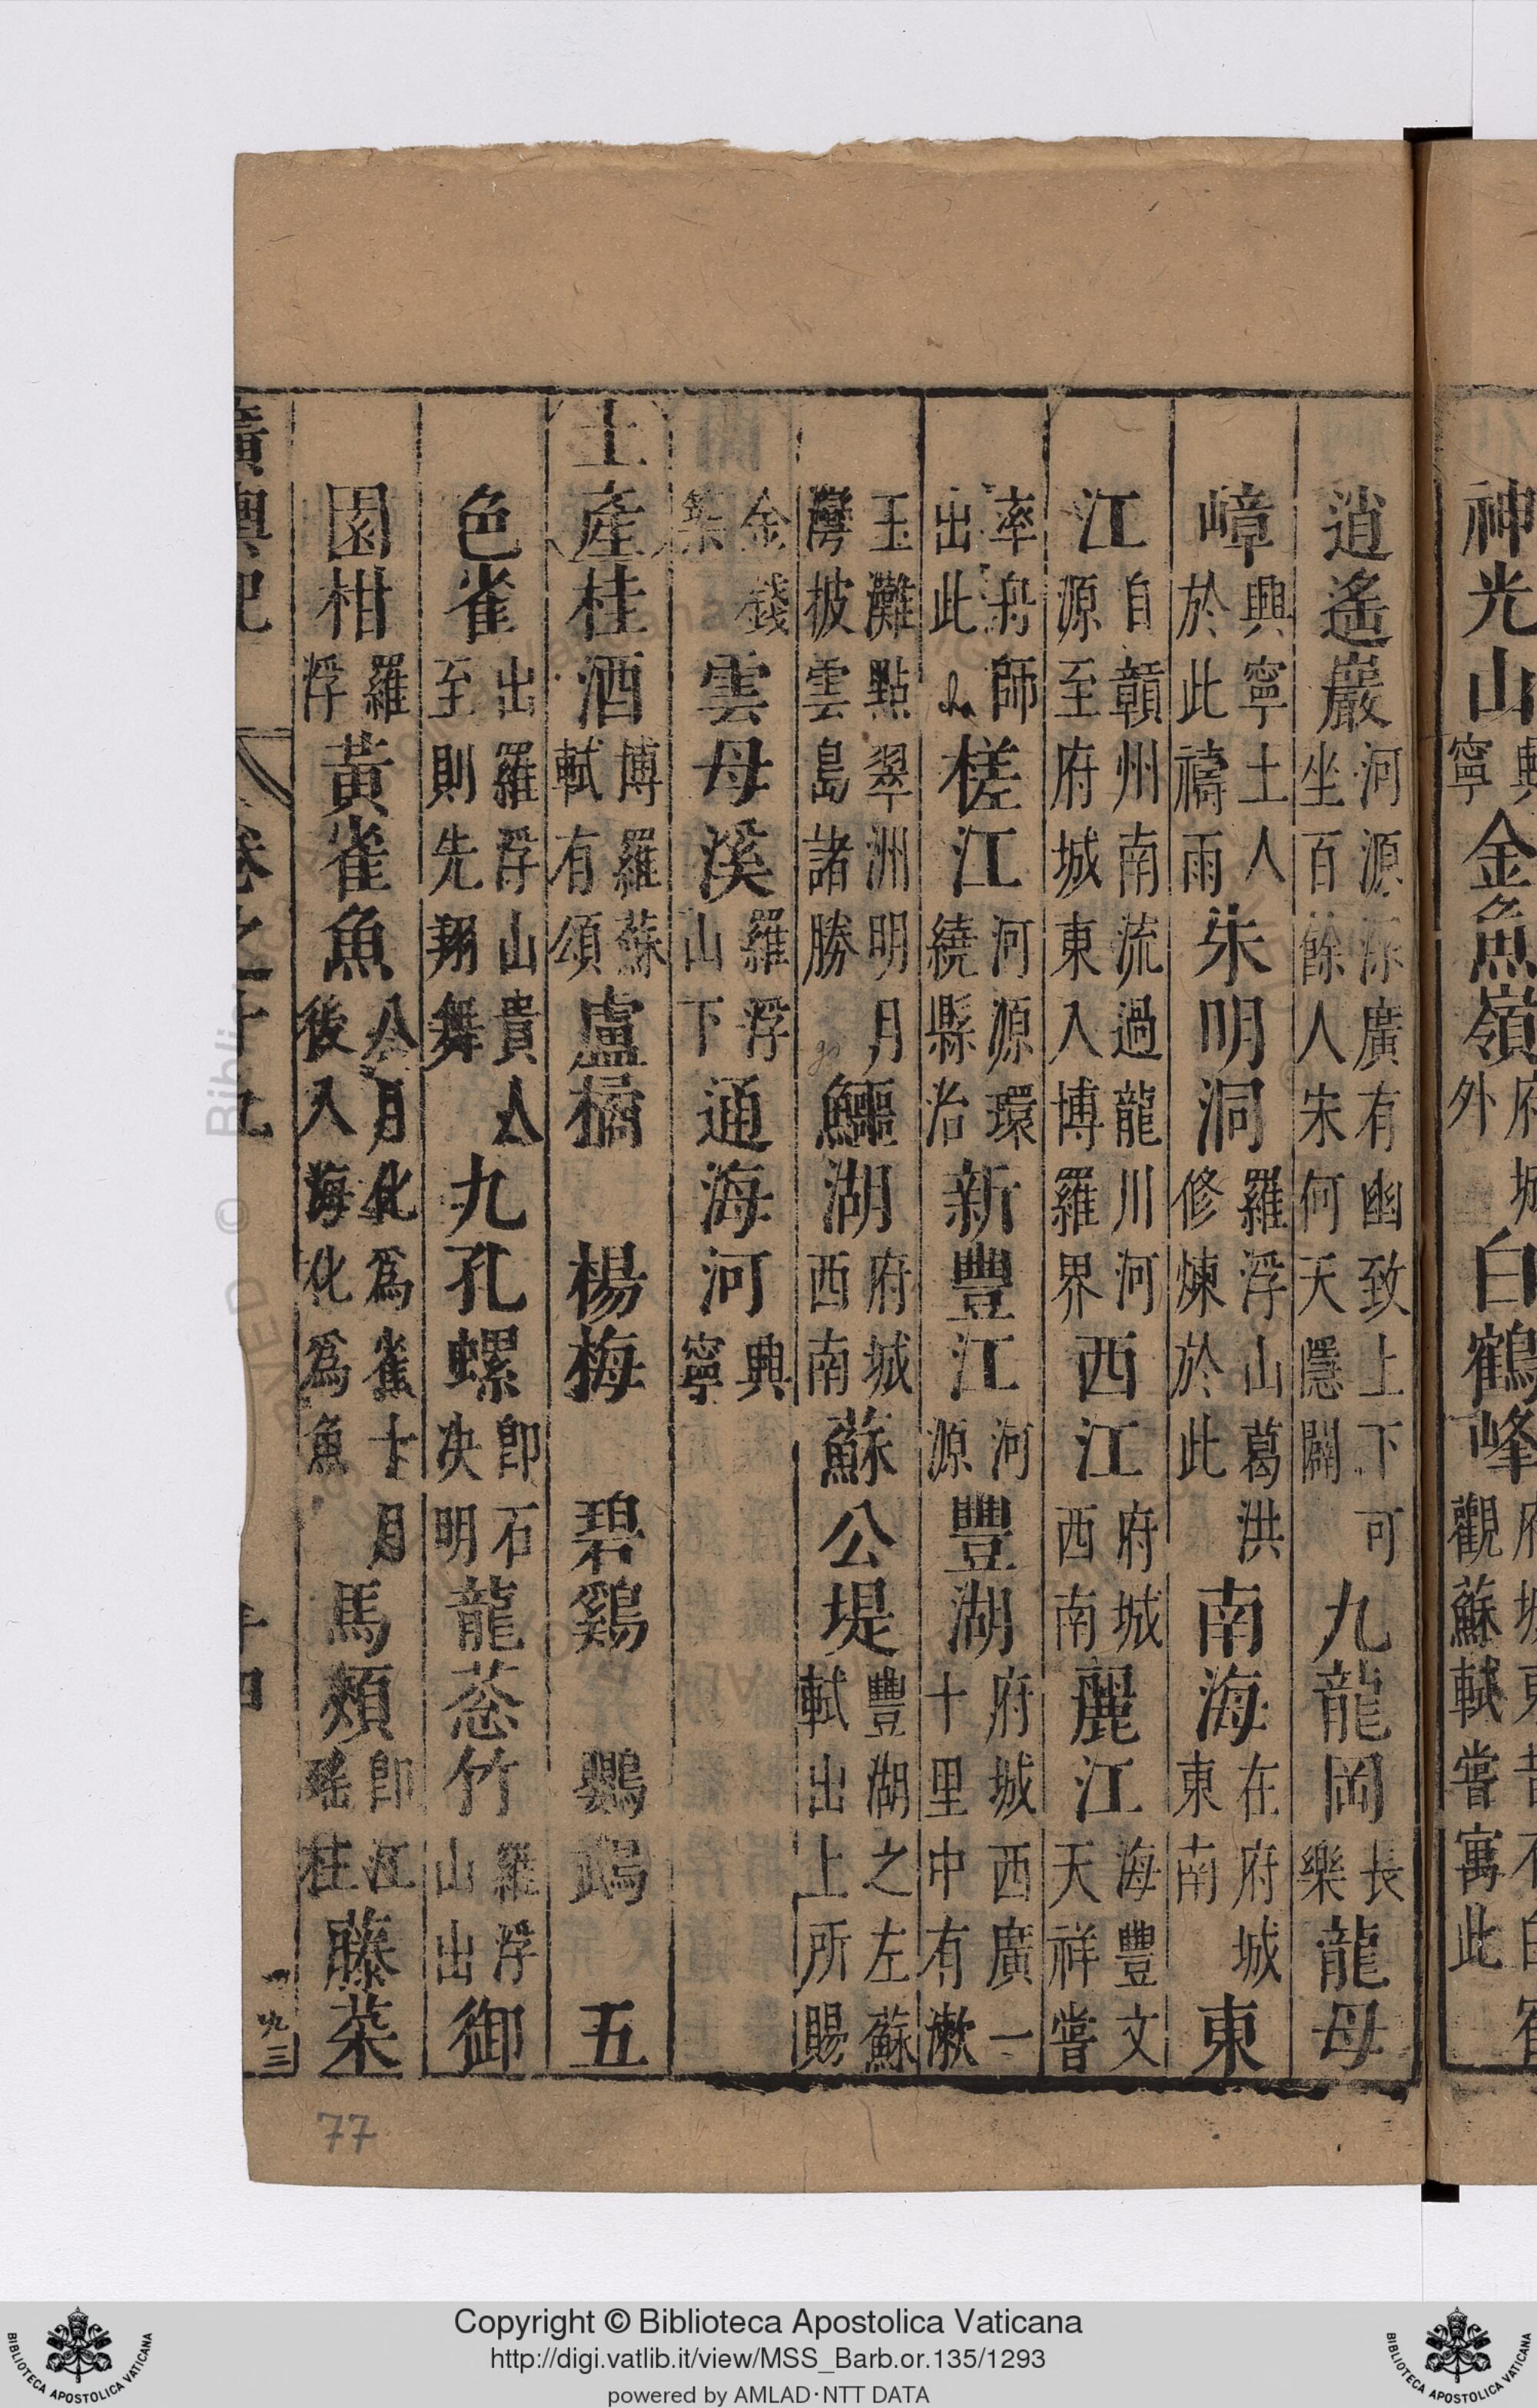 神光山寧金魚嶺外白鶴峰觀蘇軾嘗寓此
逍遙巖河源深廣有幽致上下可坐百餘人宋何天隱闢九龍岡長樂龍母
嶂興寧土人於此禱雨朱明洞羅浮山葛洪修煉於此南海在府城東南東
江自贛州南流過龍川河源至府城東入博羅界西江府城西南麗江海豐文天祥嘗
率舟師出此槎江河源環繞縣治新豐江河源豐湖府城西廣一十里中有漱
玉灘點翠洲明月灣披雲島諸勝鱷湖府城西南蘇公堤豐湖之左蘇軾出上所賜
金錢築雲母溪羅浮山下通海河興寧
土產桂酒博羅蘇軾有頌盧橘 楊梅 碧鷄 鸚鵡 五
色雀出羅浮山貴人至則先翔舞九孔螺即石决明龍葱竹羅浮山出御
園柑羅浮黃雀魚八月化為雀十月後入海化為魚馬頰即江瑤柱藤菜
廣輿記 卷之十九 十四
77
Copyright © Biblioteca Apostolica Vaticana
http://digi.vatlib.it/view/MSS_Barb.or.135/1293
powered by AMLAD·NTT DATA
BIBLIOTECA APOSTOLICA VATICANA
BIBLIOTECA APOSTOLICA VATICANA